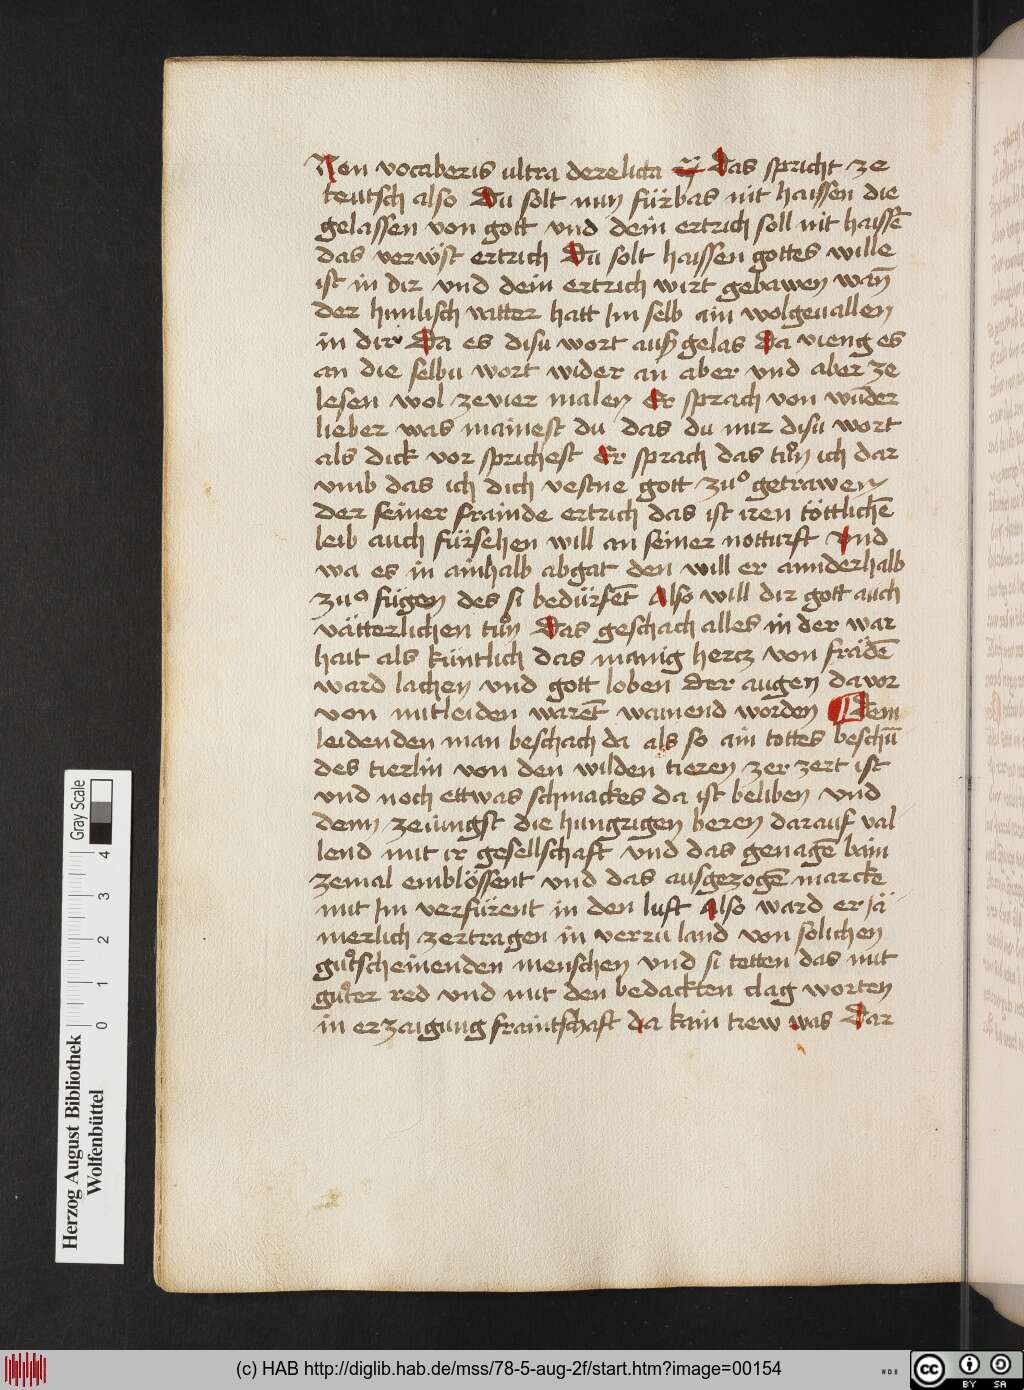 Non vocaberis ultra derelicta Das spricht ze
teutsch also Du solt nun fürbas nit haissen die
gelassen von gott vnd dein ertrich soll nit haissē
das verwöst ertrich Du solt haissen gottes wille
ist in dir vnd dein ertrich wirt gebawen wan̄
der himlisch vatter hatt Im selb ain wolgeuallen
in dir Da es disu wort auß gelas Da vieng es
an die selbu wort wider an aber vnd aber ze
lesen wol ze vier malen Er sprach von wūder
lieber was mainest du das du mir disu wort
als dick vor sprichest Er sprach das tuͦn ich dar
vmb das ich dich vestne gott zuͦ getrawen
der seiner frainde ertrich das ist iren töttlichē
leib auch fürsehen will an seiner notturft Vnd
wa es in ainhalb abgat den will er anniderhalb
zuͦ fügen des si bedürfet̄ Also will dir gott auch
vätterlichen tuͦn Das geschach alles in der war
hait als küntlich das manig hercz von frädē
ward lachen vnd gott loben Der augen da vor
von mitleiden waret̄ wainend worden Dem
leidenden man beschach da als so ain tottes beschū
des tierlin von den wilden tieren zer zert ist
vnd noch ettwas schmackes da ist beliben vnd
denn zeüngst die hungrigen beren darauf val
lend mit ir gesellschaft vnd das genagē bain
zemal emblössent vnd das ausgezogē marcke
mit Im verfürent in den luft Also ward er jä
merlich zertragen in verru land von solichen
guͦtscheinenden menschen vnd si tetten das mit
guͦter red vnd mit den bedackten clag worten
in erzaigung fraintschaft da kain trew was Dar
Gray Scale
0 1 2 3 4
Herzog August Bibliothek
Wolfenbüttel
(c) HAB http://diglib.hab.de/mss/78-5-aug-2f/start.htm?image=00154
cc BY SA